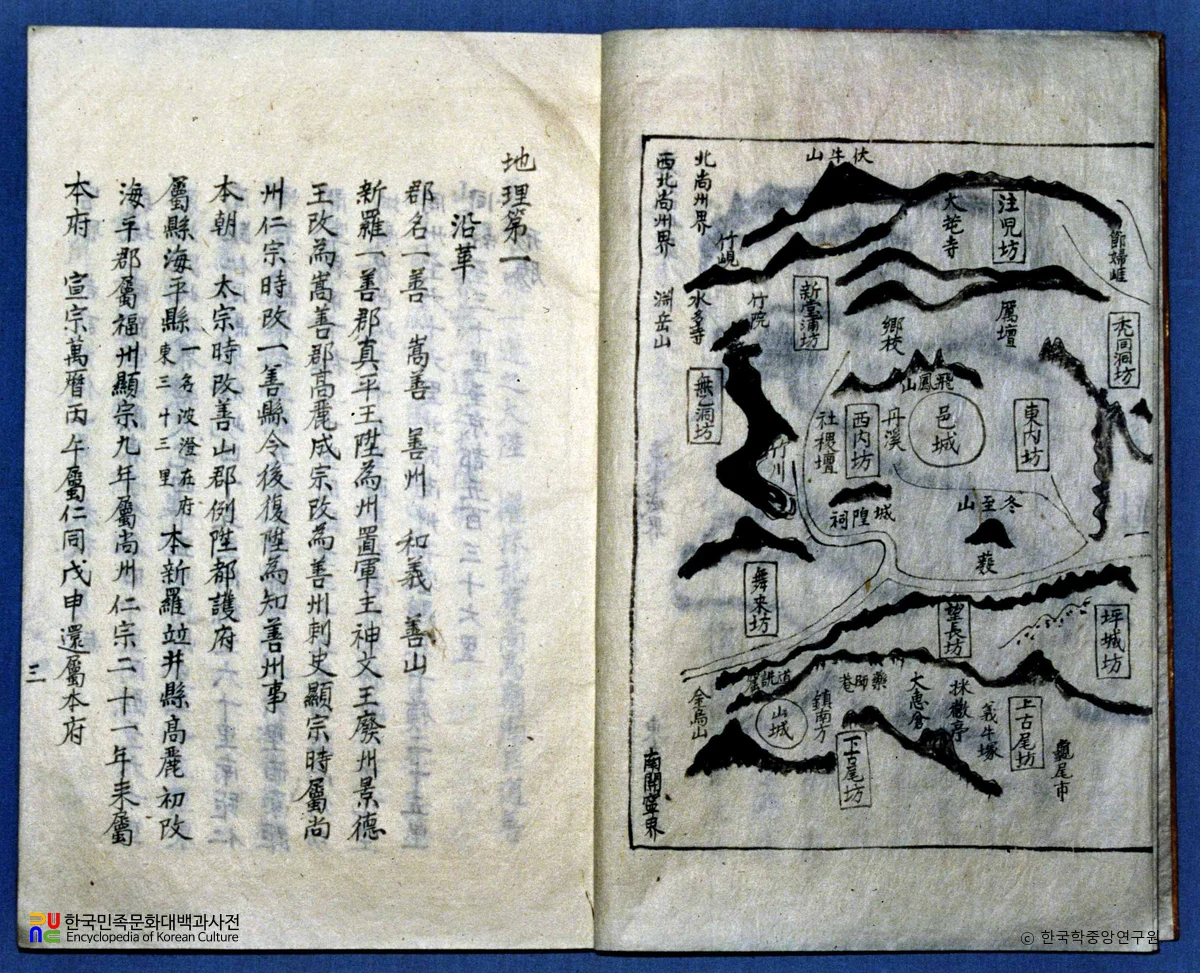 地理第一
沿革
郡名一善 嵩善 善州 和義 善山
新羅一善郡真平王陞為州置軍主神文王廢州景德
王改為嵩善郡高麗成宗改為善州刺史顯宗時屬尚
州仁宗時改一善縣令後復陞為知善州事
本朝 太宗時改善山郡例陞都護府
屬縣海平縣一名波澄在府東三十三里 本新羅竝井縣高麗初改
海平郡屬福州顯宗九年屬尚州仁宗二十一年来屬
本府 宣宗萬曆丙午屬仁同戊申還屬本府
三
北尚州界
西北尚州界
伏牛山
注兒坊
大芚寺
節婦崕
竹峴
新堂浦坊
竹院
水多寺
淵岳山
厲壇
鄉校
禿同洞坊
飛鳳山
無乙洞坊
邑城
東內坊
西內坊
丹溪
社稷壇
竹川
城隍祠
冬至山
舞来坊
望長坊
坪城坊
道詵窟
藥師菴
金烏山
山城
鎮南方
大惠倉
採薇亭
義牛塚
上古尾坊
下古尾坊
龜尾市
南開寧界
한국민족문화대백과사전
Encyclopedia of Korean Culture
© 한국학중앙연구원